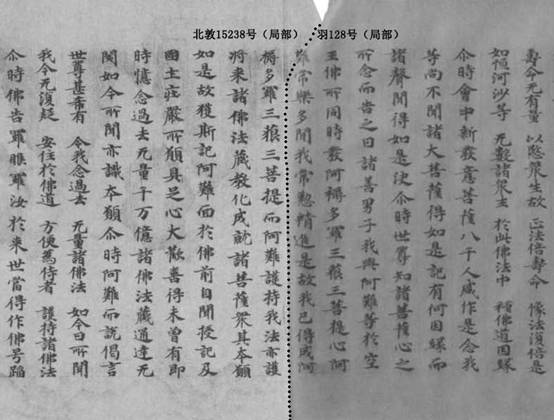 北敦15238号（局部） 羽128号（局部）
壽命无有量 以愍衆生故 正法倍壽命 像法復倍是
如恒河沙等 无數諸衆生 於此佛法中 種佛道因緣
尒時會中新發意菩薩八千人咸作是念我
等尚不聞諸大菩薩得如是記有何因緣而
諸聲聞得如是决尒時世尊知諸菩薩心之
所念而告之曰諸善男子我與阿難等於空
王佛所同時發阿耨多羅三藐三菩提心阿
難常樂多聞我常懃精進是故我已得成阿
耨多羅三藐三菩提而阿難護持我法亦護
將来諸佛法藏教化成就諸菩薩衆其本願
如是故獲斯記阿難面於佛前自聞授記及
國土莊嚴所願具足心大歡喜得未曾有即
時憶念過去无量千万億諸佛法藏通達无
閡如今所聞亦識本願尒時阿難而說偈言
世尊甚希有 令我念過去 无量諸佛法 如今日所聞
我今无復疑 安住於佛道 方便爲侍者 護持諸佛法
尒時佛告羅睺羅汝於来世當得作佛号蹈